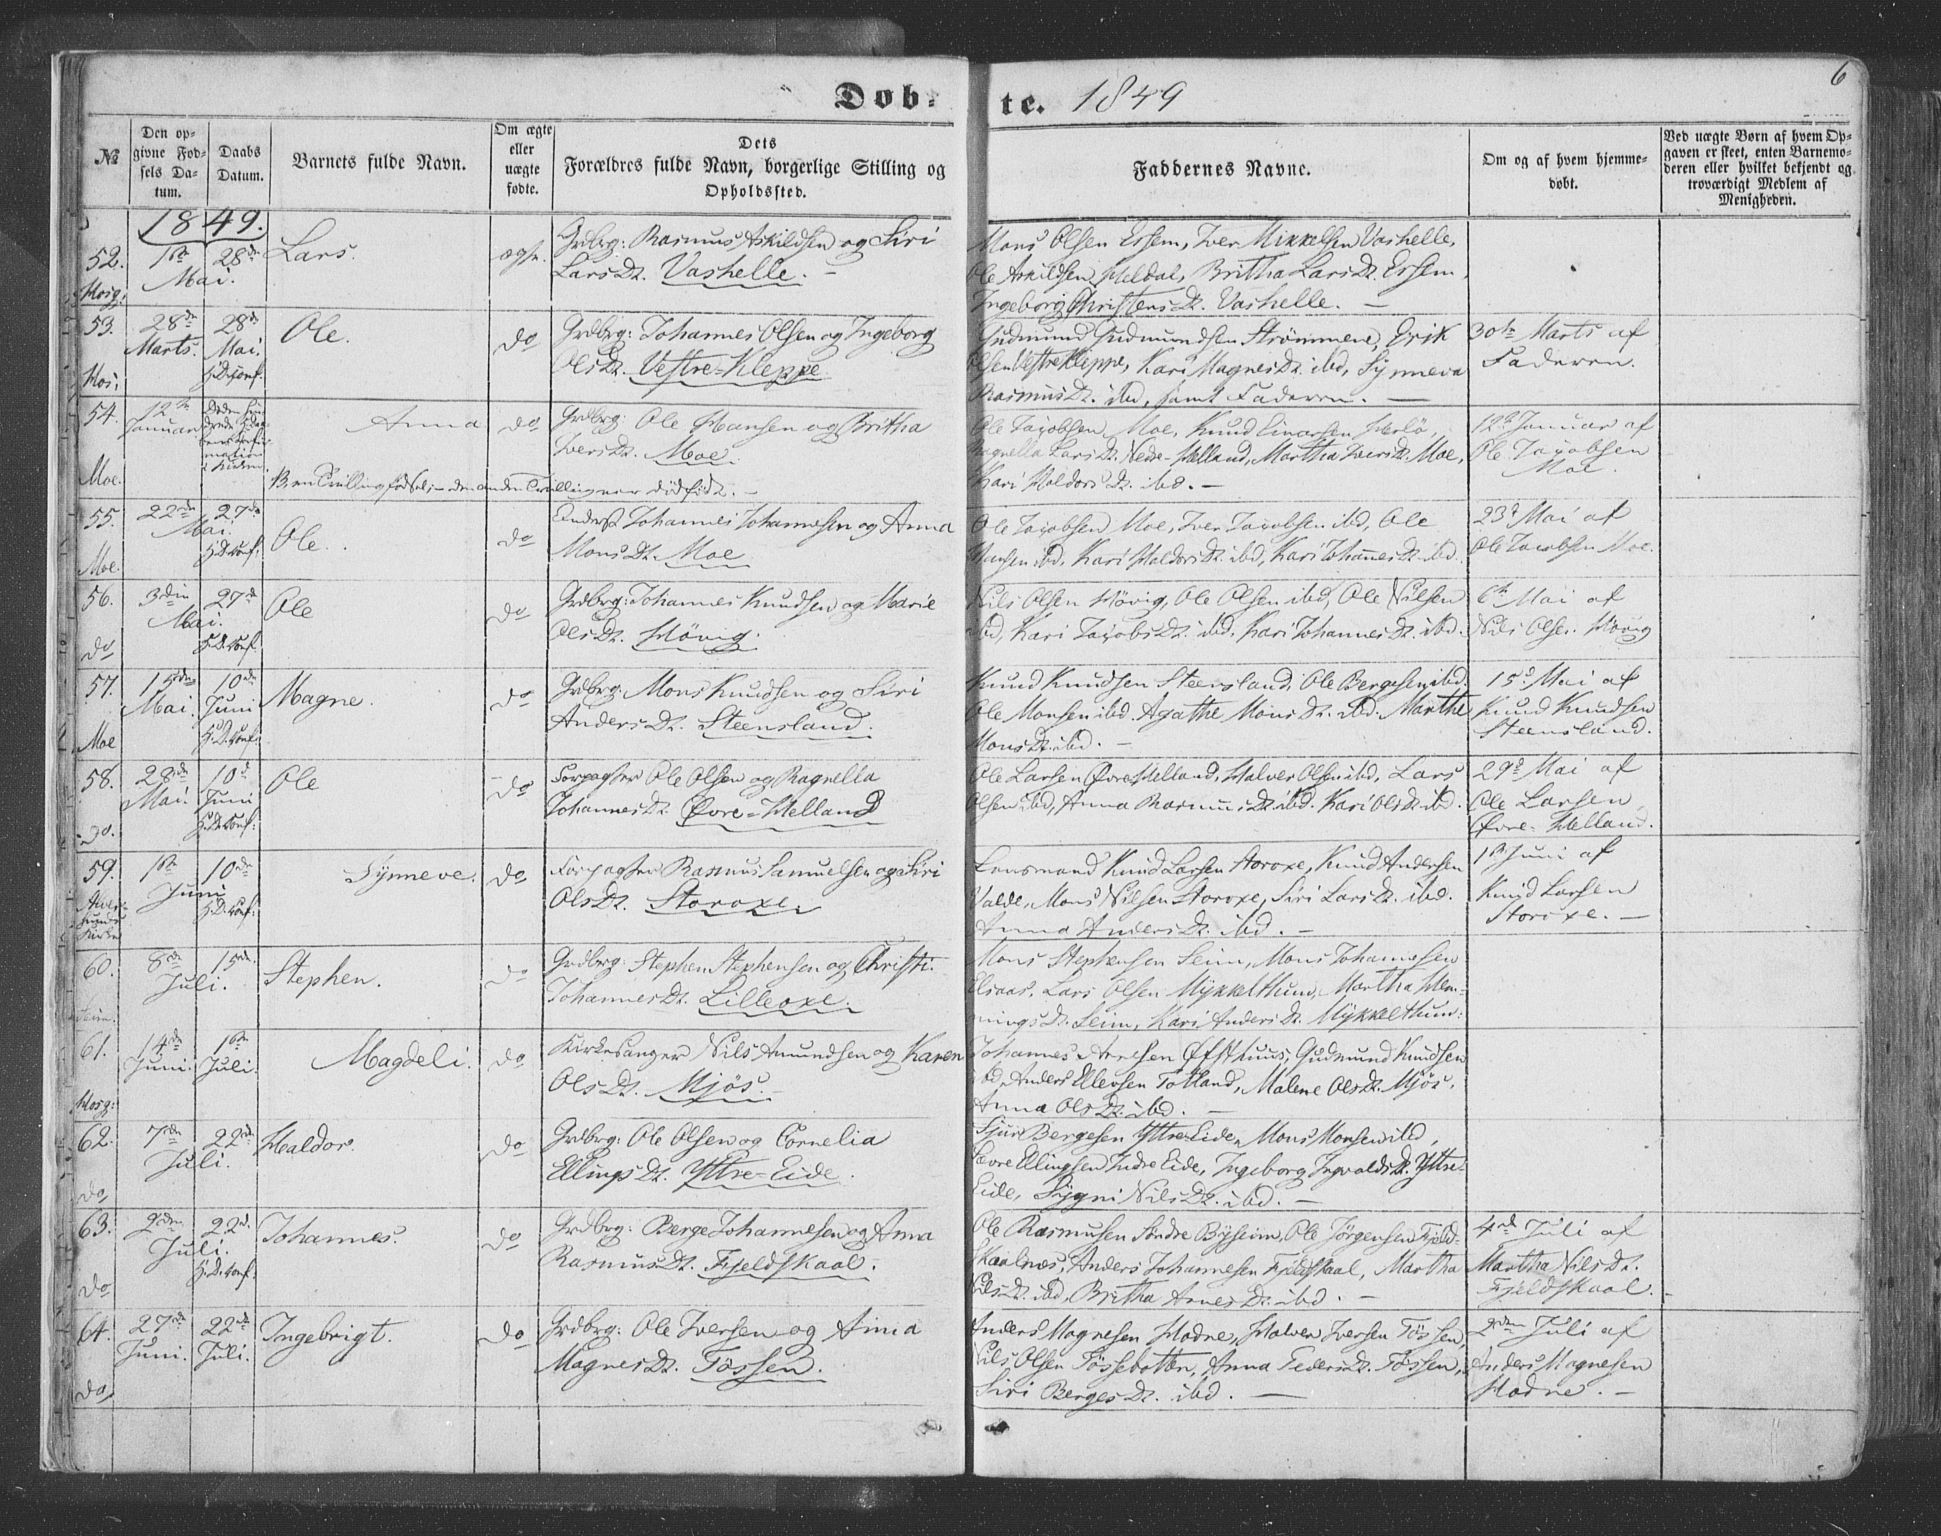 Døb-
te. 1849
6
№
Den op-
givne Fød-
sels Da-
tum.
Daabs
Datum.
Barnets fulde Navn.
Om ægte
eller
uægte
fødte.
Dets
Forældres fulde Navn, borgerlige Stilling og
Opholdssted.
Faddernes Navne.
Om og af hvem hjemme-
døbt.
Ved uægte Børn af hvem Op-
gaven er skeet, enten Barnemo-
deren eller hvilket bekjendt og
troværdigt Medlem af
Menigheden.
1849.
52. 1ste 28de Lars. ægte. Grdbrg: Rasmus Askildsen og Siri
Mai.
Lars Dt. Vashelle. –
Mons Olsen Essem, Iver Mikkelsen Vashelle,
Ole Askildsen Meldal, Britha Lars Dt. Essem,
Ingeborg Christens Dt. Vashelle. –
53. 28de 28de Ole. do Grdbrg: Johannes Olsen og Ingeborg
Marts. Mai.
Ols Dt. Vestre-Kleppe.
Gudmund Gudmundsen Strømmene, Erik
Olsen Vestre Kleppe, Kari Magnes Dt. ibd, Synneva
Rasmus Dt. ibd, samt Faderen. –
30te Marts af
Faderen.
54. 12te Anna do Grdbrg: Ole Hansen og Britha
Januar
Ivers Dt. Moe.
Moe.
Ole Jacobsen Moe, Knud Einarsen
Ragnella Lars Dt. Nedre-Helland, Martha Ivers Dt. Moe,
Kari Haldors Dt. ibd. –
12te Januar af
Ole Jacobsen
Moe.
55. 22de 27de Ole. do Johannes Johannesen og Anna
Mai
Mons Dt. Moe
Moe
Ole Jacobsen Moe, Iver Jacobsen ibd, Ole
Hansen ibd, Kari Haldors Dt. ibd, Kari Johannes Dt. ibd.
23d Mai af
Ole Jacobsen Moe.
56. 3die 27d Ole do Grdbrg: Johannes Knudsen og Marie
Mai.
Ols Dt. Høvig.
do
Nils Olsen Høvig, Ole Olsen ibd, Ole Nilsen
ibd, Kari Jacobs Dt. ibd. Kari Johannes Dt. ibd.
6te Mai af
Nils Olsen Høvig
57. 15de 10de Magne. do Grdbrg: Mons Knudsen og Siri
Mai. Juni
Anders Dt. Steensland.
Moe
Knud Knudsen Steensland, Ole Bergesen ibd.
Ole Monsen ibd. Agathe Mons Dt. ibd. Marthe
Mons Dt. ibd. –
15d Mai af
Knud Knudsen
Steensland.
58. 28de 10d Ole do Forpagter Ole Olsen og Ragnella
Mai. Juni
Johannes Dt. Øvre-Helland
do.
Ole Larsen Øvre Helland, Halver Olsen ibd, Lars
Olsen ibd, Anna Rasmus Dt. ibd. Kari Ols Dt. ibd.
29d Mai af
Ole Larsen,
Øvre-Helland.
59. 1ste 10de Synneve. do Forpagter Rasmus Samuelsen og Siri
Juni
Ols Dt. Storoxe.
Lensmand Knud Larsen Storoxe, Knud Andersen
Valde, Mons Nilsen Storoxe, Siri Lars Dt. ibd.
Anna Anders Dt. ibd. –
1ste Juni af
Knud Larsen
Storoxe. –
60. 8de 15de Stephen. do Grdbrg: Stephen Stephensen og Christi.
Juli.
Johannes Dt. Lilleoxe.
Mons Stephensen Seim, Mons Johannesen
Elsaas, Lars Olsen Mykkelthun, Martha Hem-
mings Dt. Seim, Kari Anders Dt. Mykkelthun.
61. 14de 1ste Magdeli. do Kirkesanger Nils Amundsen og Karen
Juni. Juli.
Ols Dt. Mjøs.
Johannes Arnesen Øfsthuus, Gudmund Knudsen
ibd, Anders Ellevsen Totland, Malene Ols Dt. Mjøs,
Anna Ols Dt. ibd. –
62. 7de 22de Haldor. do Grdbrg: Ole Olsen og Cornelia
Juli.
Ellings Dt. Yttre-Eide.
do
Sjur Bergesen Yttre Eide, Mons Monsen ibd,
Sevre Ellingsen Indre Eide, Ingeborg Ingvalds Dt. Yttre-
Eide, Sygni Nils Dt. ibd. –
63. 2den 22d. Johannes. do Grdbrg: Berge Johannesen og Anna
Juli.
Rasmus Dt. Fjeldskaal.
do
Ole Rasmusen Søndre Bysheim, Ole Jørgensen Fjeld-
skaalnæs, Anders Johannesen Fjeldskaal, Martha
Nils Dt. ibd, Britha Arnes Dt. ibd. –
4de Juli af
Martha Nils Dt.
Fjeldskaal. –
64. 27de 22de Ingebrigt. do Grdbrg: Ole Iversen og Anna
Juni. Juli.
Magnes Dt. Tøssen.
do
Anders Magnesen Hodne, Halver Iversen Tøssen,
Nils Olsen Tøssebotten, Anna Peders Dt. Tøssen,
Siri Berges Dt. ibd. –
2den Juli af
Anders Magnesen
Hodne. –